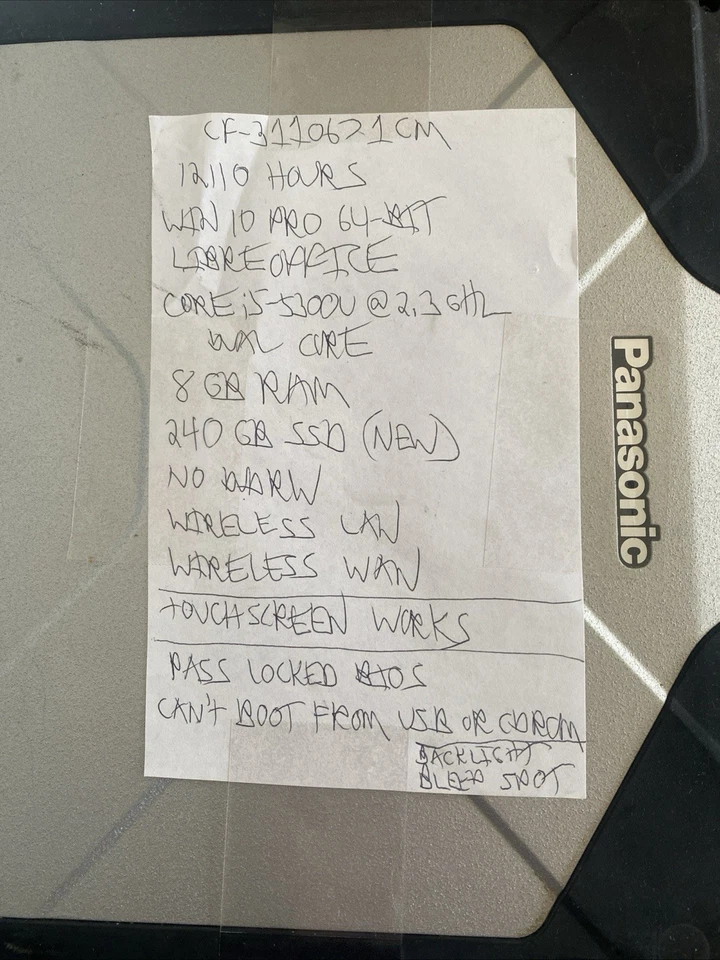 CF-3110671CM
12110 HOURS
WIN 10 PRO 64-BIT
LIBREOFFICE
CORE i5-5300U @ 2.3 GHZ
DUAL CORE
8 GB RAM
240 GB SSD (NEW)
NO DVDRW
WIRELESS LAN
WIRELESS WAN
TOUCHSCREEN WORKS
PASS LOCKED BIOS
CAN'T BOOT FROM USB OR CDROM
BACKLIGHT
BLEED SPOT
Panasonic